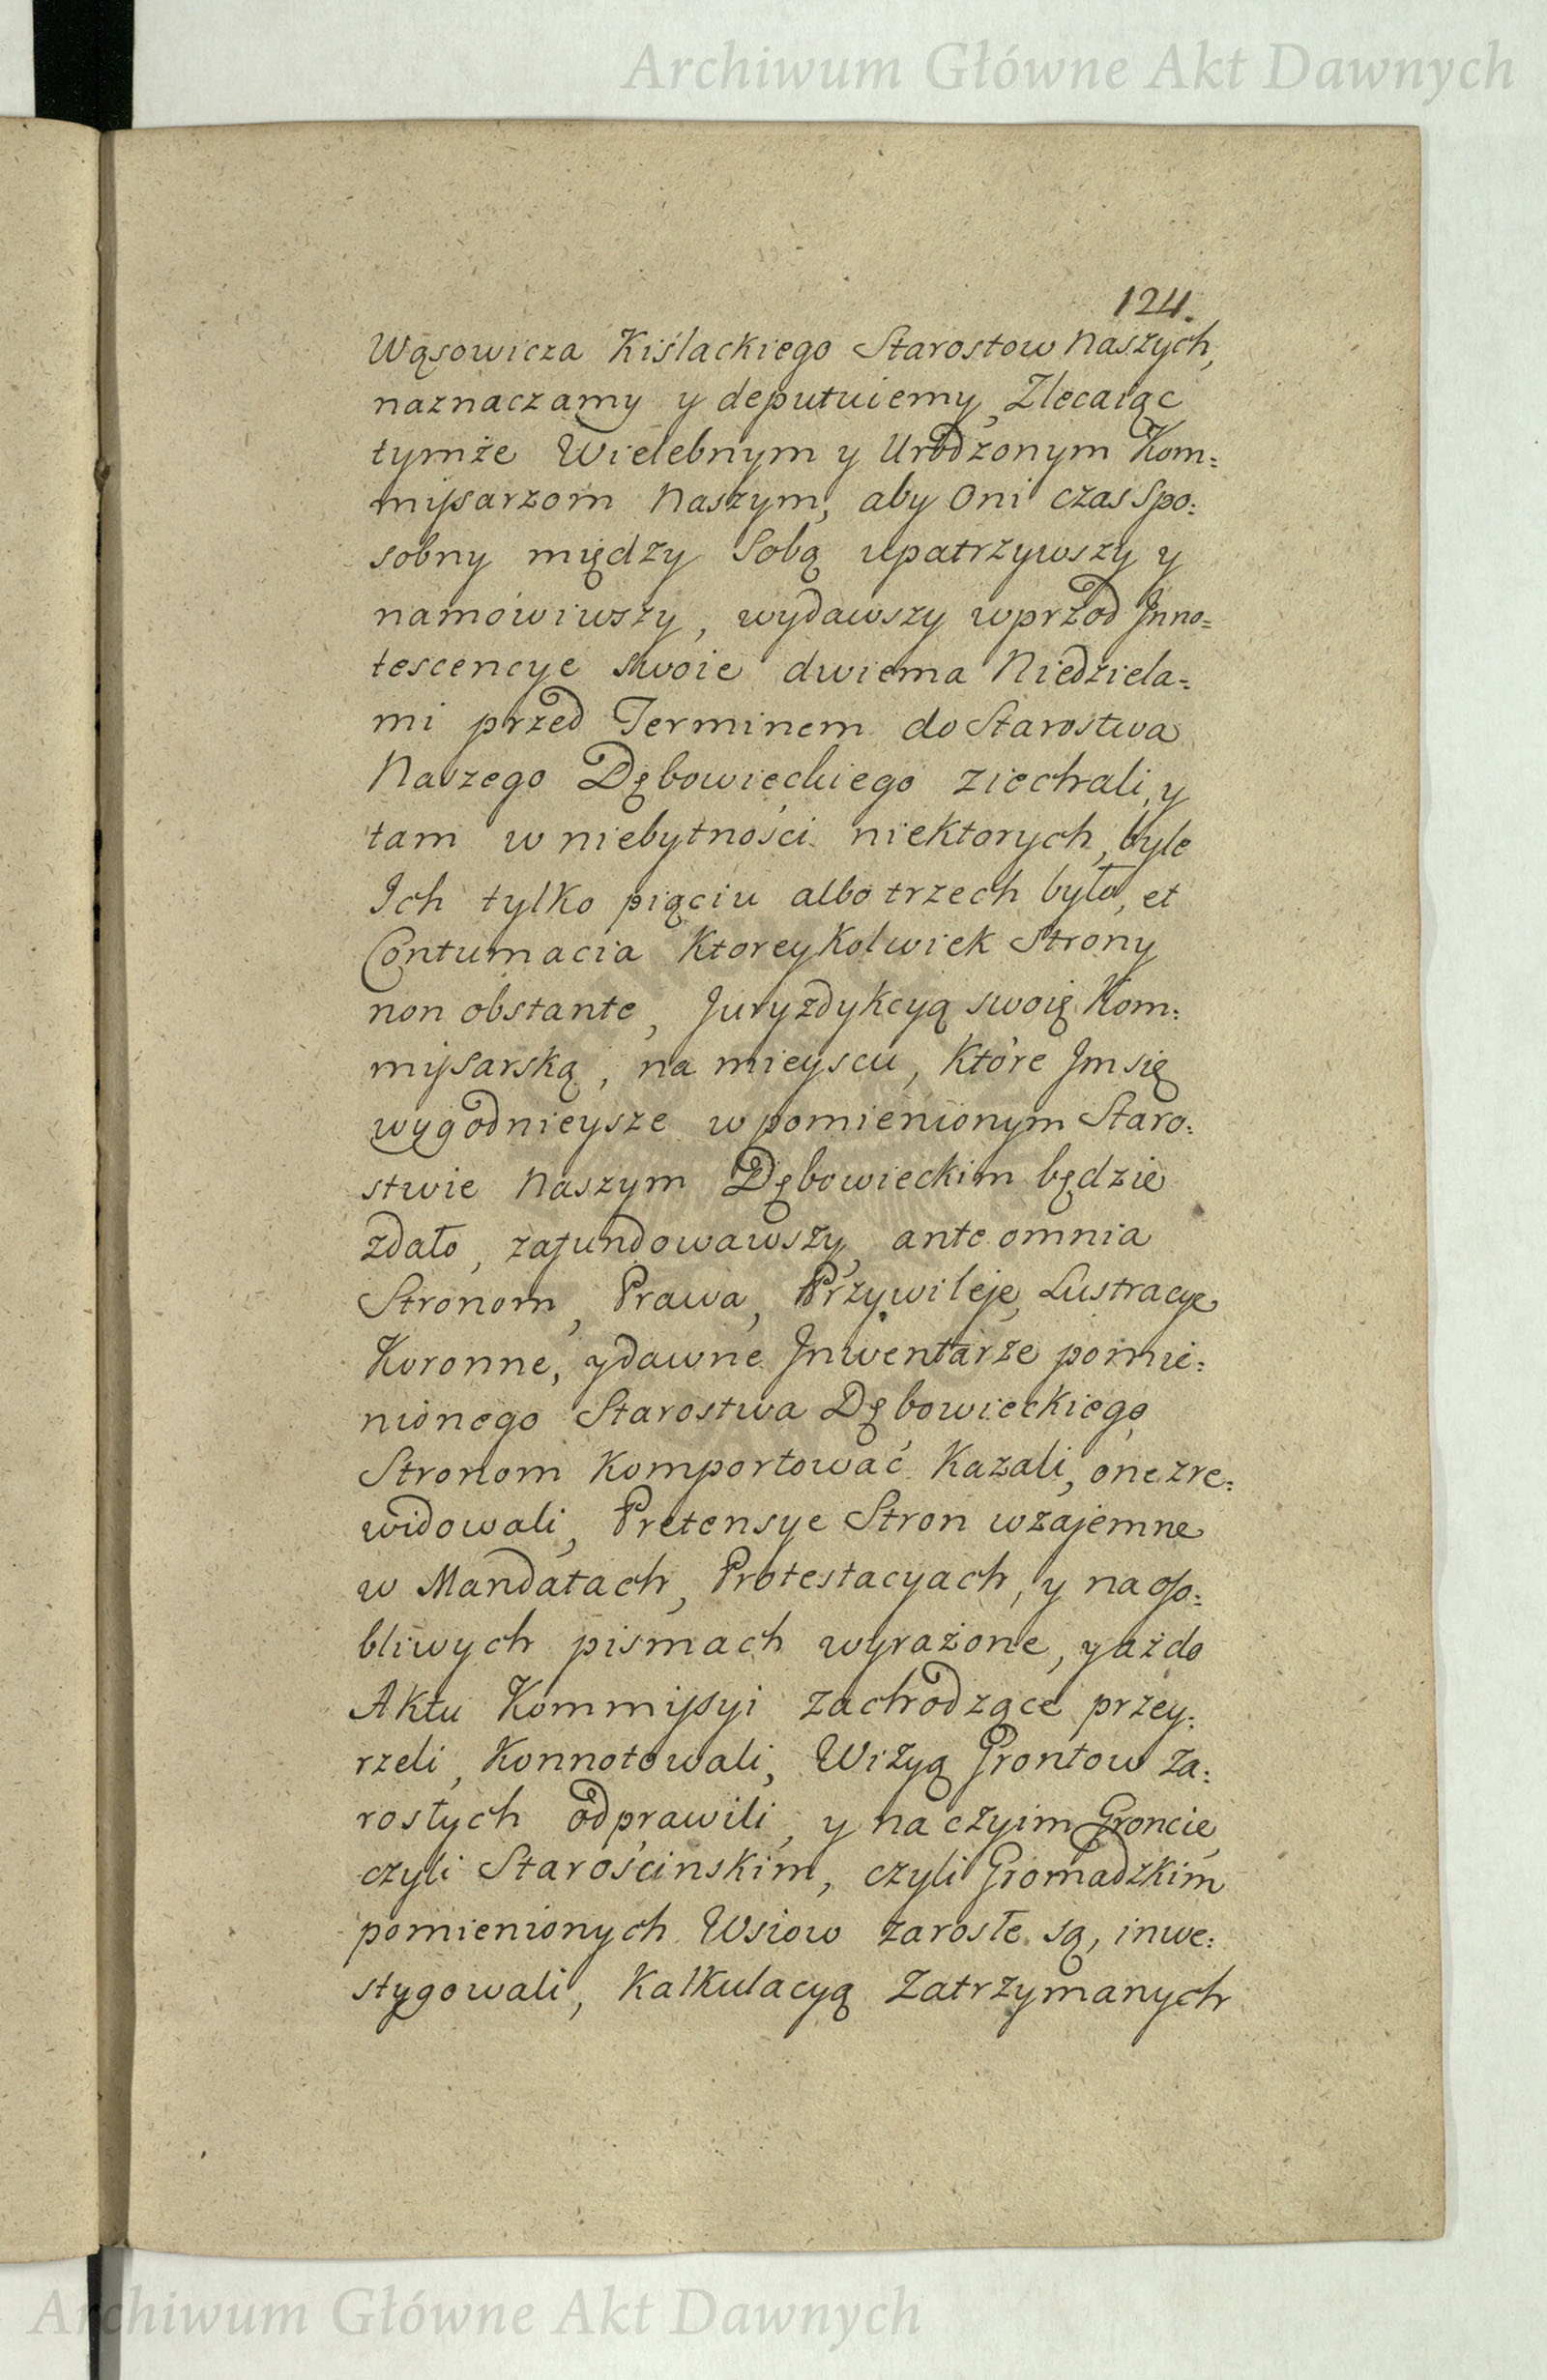 Archiwum Główne Akt Dawnych
124.
Wąsowicza Kiślackiego Starostow Naszych,
naznaczamy y deputuiemy, Zlecaiąc
tymże Wielebnym y Urodzonym Kom=
missarzom Naszym, aby Oni czas Spo=
sobny między Sobą upatrzywszy y
namówiwszy, wydawszy wprzod Inno=
tescencye swoie dwiema Niedziela=
mi przed Terminem do Starostwa
Naszego Dębowieckiego ziechali, y
tam w niebytności niektorych, byle
Ich tylko pięciu albo trzech było, et
Contumacia Ktoreykolwiek Strony
non obstante, Juryzdykcyą swoię Kom=
missarską, na mieyscu, Które Im się
wygodnieysze w pomienionym Staro=
stwie Naszym Dębowieckim będzie
zdało, zafundowawszy, ante omnia
Stronom, Prawa, Przywileje, Lustracye
Koronne, y dawne Inwentarze pomie=
nionego Starostwa Dębowieckiego
Stronom Komportować Kazali, one zre=
widowali, Pretensye Stron wzajemne
w Mandatach, Protestacyach, y na oso=
bliwych pismach wyrażone, y aż do
Aktu Kommissyi zachodzące przey=
rzeli, Konnotowali, Wizyą Grontow za=
rosłych odprawili, y na czyim Groncie,
czyli Starościnskim, czyli Gromadzkim
pomienionych Wsiow zarosłe są, inwe=
stygowali, Kalkulacyą Zatrzymanych
Archiwum Główne Akt Dawnych